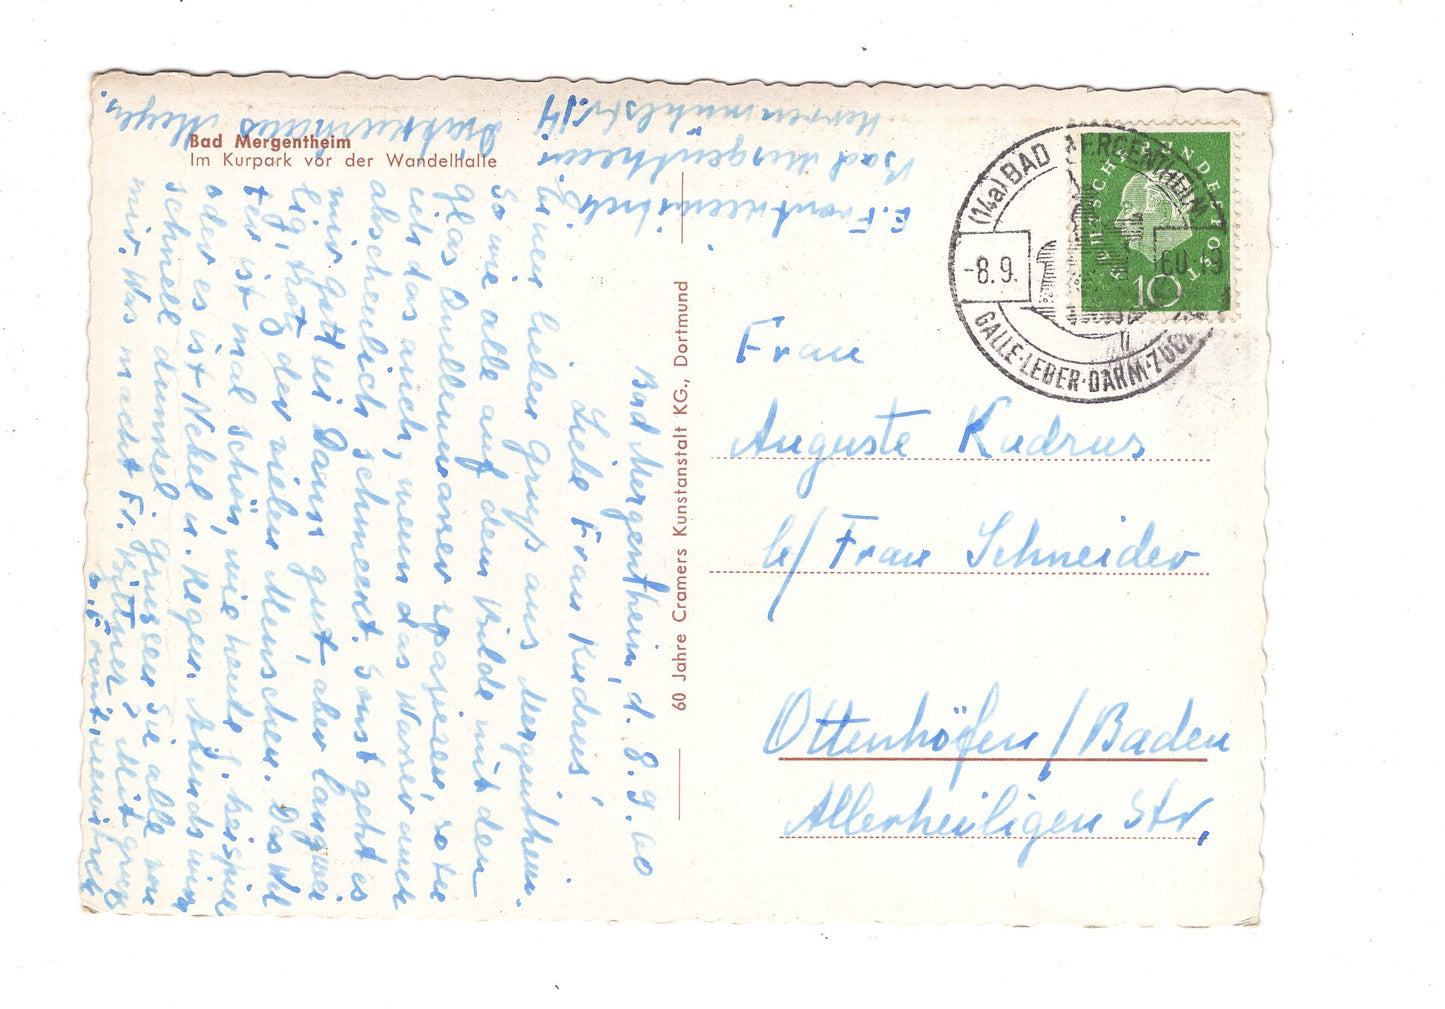 Bad Mergentheim
Im Kurpark vor der Wandelhalle
60 Jahre Cramers Kunstanstalt KG., Dortmund
(14a) BAD MERGENTHEIM
-8.9.60.-19
GALLE·LEBER·DARM·ZUCKER
DEUTSCHE BUNDESPOST
10
Frau
Auguste Kudrus
b/ Frau Schneider
Ottenhöfen / Baden
Allerheiligen Str,
Bad Mergentheim, d. 8.9.60
Liebe Frau Kudrus,
Ihnen lieben Gruß aus Mergentheim.
So wie alle auf dem Bilde mit dem
Glas Quellwasser spazieren
ich das auch, wenn das Wasser auch
abscheulich schmeckt. Sonst geht es
mir gut bei Daus gut, aber langwei
lig, trotz der vielen Menschen. Das Wet
ter ist mal schön, wie heute z. beispiel
oder es ist Nebel u. Regen. Abends wirds
schnell dunkel. Grüssen Sie alle von
mir. Was macht Fr. Kittner? Mit gruss
E. Frontniewitsch
Bad Mergentheim
Herrenmühlstr. 14